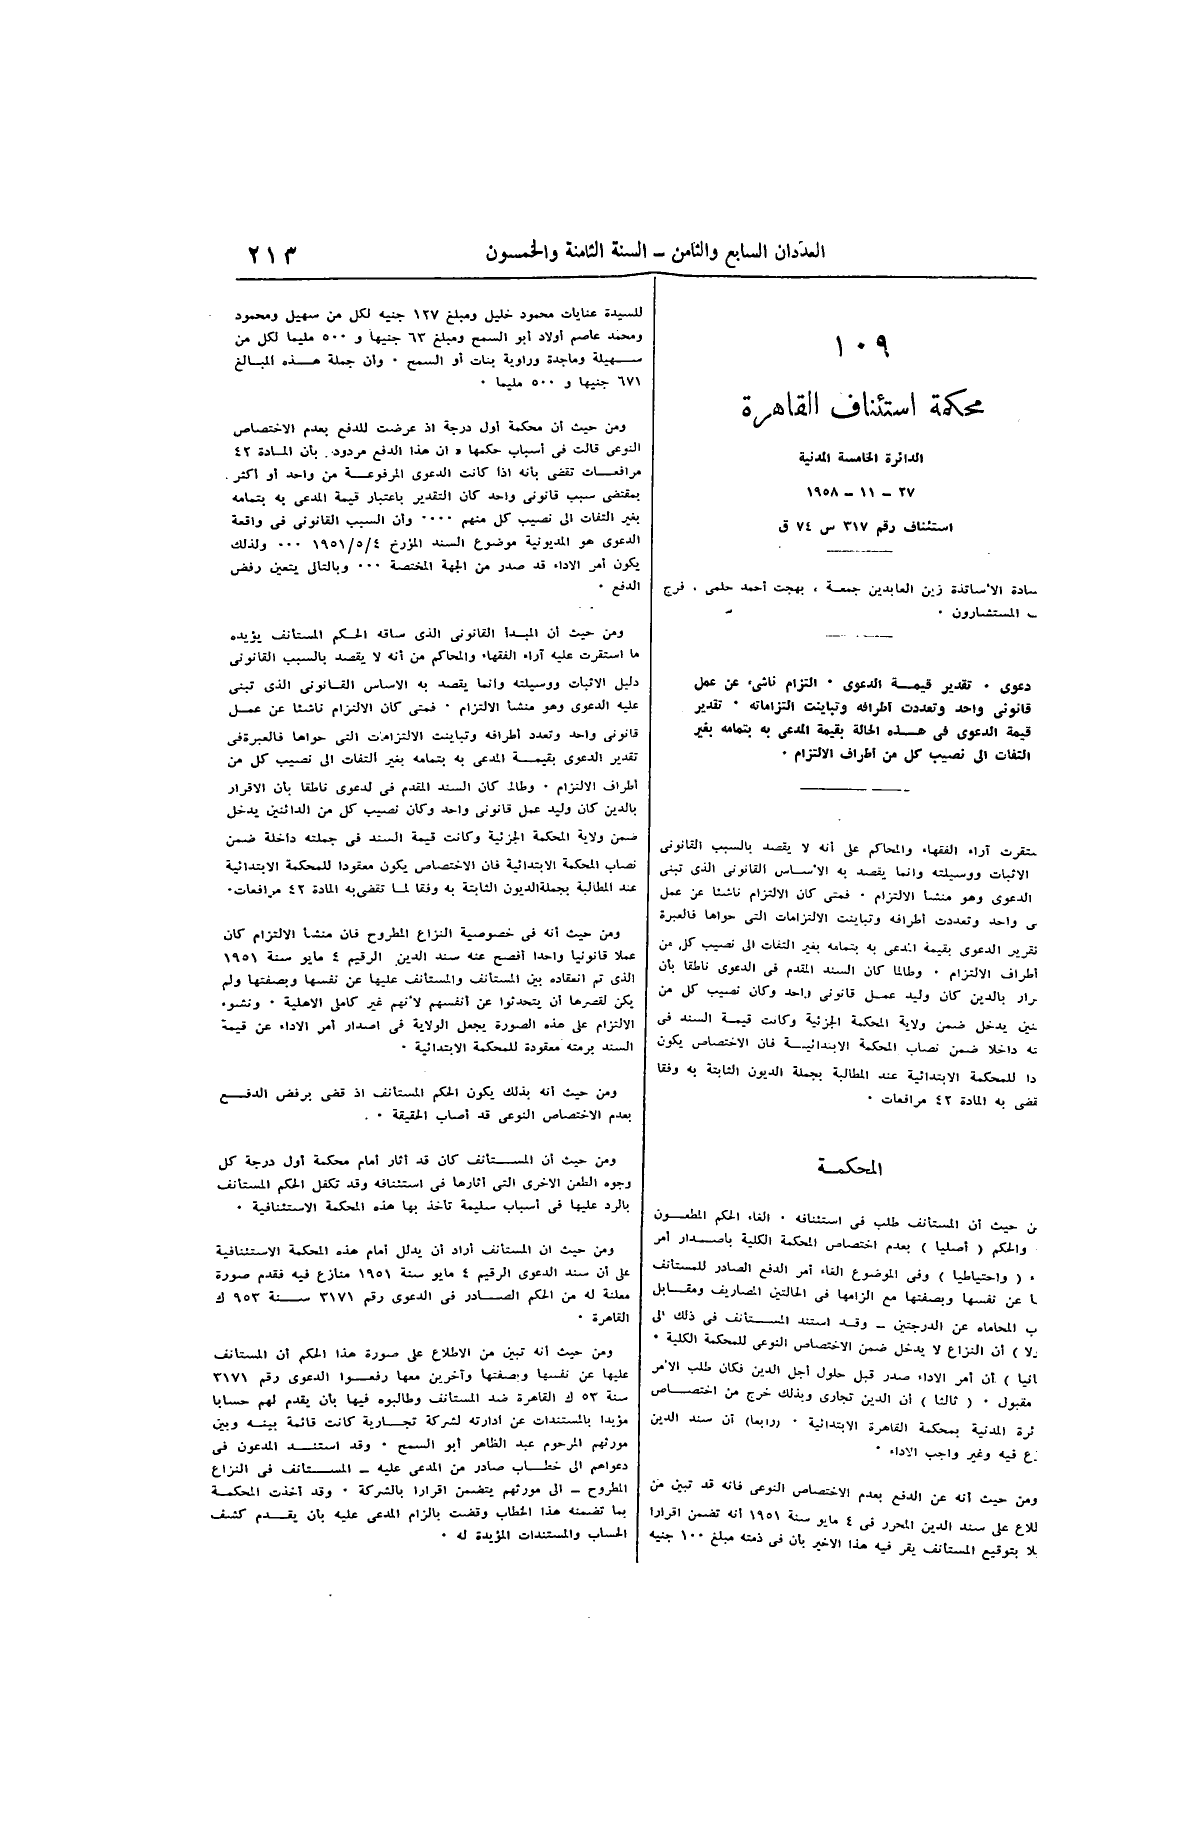 العددان السابع والثامن – السنة الثامنة والخمسون
٢١٣
١٠٩
محكمة استئناف القاهرة
الدائرة الخامسة المدنية
٢٧ – ١١ – ١٩٥٨
استئناف رقم ٣١٧ س ٧٤ ق
سادة الأساتذة زين العابدين جمعة ، بهجت أحمد حلمى ، فرج
ـ المستشارون ٠
دعوى ٠ تقدير قيمــة الدعوى ٠ التزام ناشىء عن عمل
قانونى واحد وتعددت أطرافه وتباينت التزاماته ٠ تقدير
قيمة الدعوى فى هــذه الحالة بقيمة المدعى به بتمامه بغير
التفات الى نصيب كل من أطراف الالتزام ٠
ستقرت آراء الفقهاء والمحاكم على أنه لا يقصد بالسبب القانونى
الاثبات ووسيلته وانما يقصد به الأسـاس القانونى الذى تبنى
الدعوى وهو منشأ الالتزام ٠ فمتى كان الالتزام ناشئا عن عمل
ى واحد وتعددت أطرافه وتباينت الالتزامات التى حواها فالعبرة
تقرير الدعوى بقيمة المدعى به بتمامه بغير التفات الى نصيب كل من
أطراف الالتزام ٠ وطالما كان السند المقدم فى الدعوى ناطقا بأن
رار بالدين كان وليد عمـل قانونى واحد وكان نصيب كل من
ئنين يدخل ضمن ولاية المحكمة الجزئية وكانت قيمـة السند فى
ته داخلا ضمن نصاب المحكمة الابتدائيــة فان الاختصاص يكون
دا للمحكمة الابتدائية عند المطالبة بجملة الديون الثابتة به وفقا
قضى به المادة ٤٢ مرافعات ٠
المحكمــة
ن حيث أن المستأنف طلب فى استئنافه ٠ الغاء الحكم المطعــون
والحكم ( أصليا ) بعدم اختصاص المحكمة الكلية باصــدار أمر
ء ( واحتياطيا ) وفى الموضوع الغاء أمر الدفع الصادر للمستأنف
ا عن نفسها وبصفتها مع الزامها فى الحالتين المصاريف ومقــابل
ب المحاماه عن الدرجتين – وقـد استند المســتأنف فى ذلك الى
ولا ) أن النزاع لا يدخل ضمن الاختصاص النوعى للمحكمة الكلية ٠
انيا ) أن أمر الاداء صدر قبل حلول أجل الدين فكان طلب الأمر
مقبول ٠ ( ثالثا ) أن الدين تجارى وبذلك خرج من اختصــاص
ئرة المدنية بمحكمة القاهرة الابتدائية ٠ (رابعا) أن سند الدين
زع فيه وغير واجب الاداء ٠
ومن حيث أنه عن الدفع بعدم الاختصاص النوعى فانه قد تبين من
طلاع على سند الدين المحرر فى ٤ مايو سنة ١٩٥١ أنه تضمن اقرارا
لا بتوقيع المستأنف يقر فيه هذا الاخير بأن فى ذمته مبلغ ١٠٠ جنيه
للسيدة عنايات محمود خليل ومبلغ ١٢٧ جنيه لكل من سهيل ومحمود
ومحمد عاصم أولاد أبو السمح ومبلغ ٦٣ جنيها و ٥٠٠ مليما لكل من
ســهيلة وماجدة وراوية بنات أو السمح ٠ وأن جملة هــذه المبـالغ
٦٧١ جنيها و ٥٠٠ مليما ٠
ومن حيث أن محكمة أول درجة اذ عرضت للدفع بعدم الاختصاص
النوعى قالت فى أسباب حكمها « ان هذا الدفع مردود بأن المـادة ٤٢
مرافعــات تقضى بأنه اذا كانت الدعوى المرفوعــة من واحد أو أكثر
بمقتضى سبب قانونى واحد كان التقدير باعتبار قيمة المدعى به بتمامه
بغير التفات الى نصيب كل منهم ٠٠٠٠ وأن السبب القانونى فى واقعة
الدعوى هو المديونية موضوع السند المؤرخ ١٩٥١/٥/٤ ٠٠٠ ولذلك
يكون أمر الاداء قد صدر من الجهة المختصة ٠٠٠ وبالتالى يتعين رفض
الدفع ٠
ومن حيث أن المبـدأ القانونى الذى ساقه الحـكم المستأنف يؤيده
ما استقرت عليه آراء الفقهاء والمحاكم من أنه لا يقصد بالسبب القانونى
دليل الاثبات ووسيلته وانما يقصد به الاساس القـانونى الذى تبنى
عليه الدعوى وهو منشأ الالتزام ٠ فمتى كان الالتزام ناشئا عن عمــل
قانونى واحد وتعدد أطرافه وتباينت الالتزامات التى حواها فالعبرةفى
تقدير الدعوى بقيمــة المدعى به بتمامه بغير ألتفات الى نصيب كل من
أطراف الالتزام ٠ وطالما كان السند المقدم فى لدعوى ناطقا بأن الاقرار
بالدين كان وليد عمل قانونى واحد وكان نصيب كل من الدائنين يدخل
ضمن ولاية المحكمة الجزئية وكانت قيمة السند فى جملته داخلة ضمن
نصاب المحكمة الابتدائية فان الاختصاص يكون معقودا للمحكمة الابتدائية
عند المطالبة بجملةالديون الثابتة به وفقا لمـا تقضىبه المادة ٤٢ مرافعات٠
ومن حيث أنه فى خصوصية النزاع المطروح فان منشأ الالتزام كان
عملا قانونيا واحدا أفصح عنه سند الدين الرقيم ٤ مايو سنة ١٩٥١
الذى تم انعقاده بين المستأنف والمستأنف عليها عن نفسها وبصفتها ولم
يكن لقصرها أن يتحدثوا عن أنفسهم لأنهم غير كاملى الاهلية ٠ ونشوء
الالتزام على هذه الصورة يجعل الولاية فى اصدار أمر الاداء عن قيمة
السند برمته معقودة للمحكمة الابتدائية ٠
ومن حيث أنه بذلك يكون الحكم المستأنف اذ قضى برفض الدفــع
بعدم الاختصاص النوعى قد أصاب الحقيقة ٠
ومن حيث أن المســتأنف كان قد أثار أمام محكمة أول درجة كل
وجوه الطعن الاخرى التى أثارها فى استئنافه وقد تكفل الحكم المستأنف
بالرد عليها فى أسباب سليمة تأخذ بها هذه المحكمة الاستئنافية ٠
ومن حيث ان المستأنف أراد أن يدلل أمام هذه المحكمة الاستئنافية
على أن سند الدعوى الرقيم ٤ مايو سنة ١٩٥١ منازع فيه فقدم صورة
معلنة له من الحكم الصــادر فى الدعوى رقم ٣١٧١ ســنة ٩٥٣ ك
القاهرة ٠
ومن حيث أنه تبين من الاطلاع على صورة هذا الحكم أن المستأنف
عليها عن نفسها وبصفتها وآخرين معها رفعــوا الدعوى رقم ٣١٧١
سنة ٥٣ ك القاهرة ضد المستأنف وطالبوه فيها بأن يقدم لهم حسابا
مؤيدا بالمستندات عن ادارته لشركة تجـارية كانت قائمة بينـه وبين
مورثهم المرحوم عبد الظاهر أبو السمح ٠ وقد استنــد المدعون فى
دعواهم الى خطــاب صادر من المدعى عليه – المســتأنف فى النزاع
المطروح – الى مورثهم يتضمن اقرارا بالشركة ٠ وقد أخذت المحكمـة
بما تضمنه هذا الخطاب وقضت بالزام المدعى عليه بأن يقــدم كشف
الحساب والمستندات المؤيدة له ٠